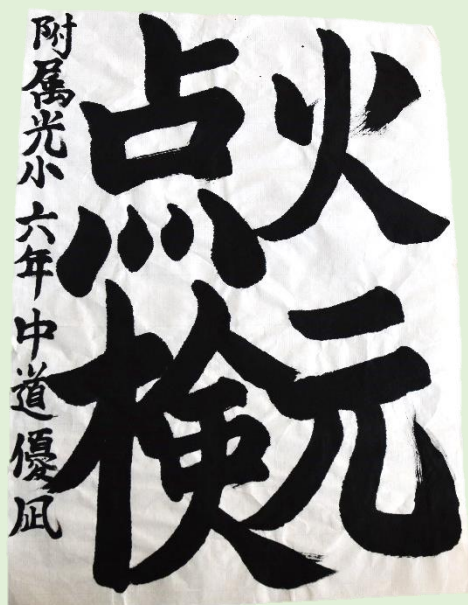 火元
点検
附属光小 六年 中道優凪